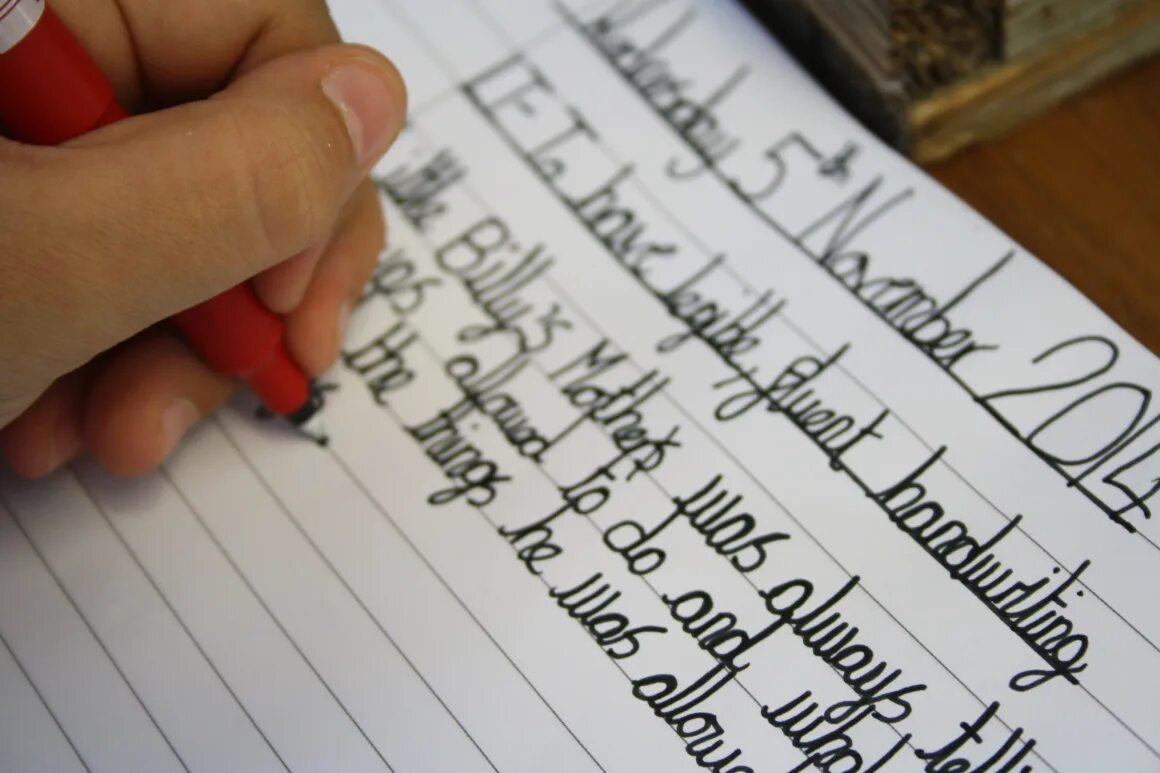 Wednesday 5th November 2014
LF To have legible, fluent handwriting
Little Billy's Mother was always tell
allowed to do and
the things he was allow